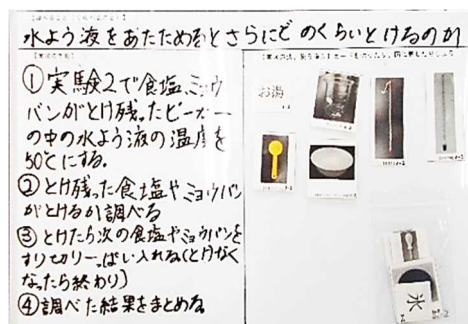 水よう液をあたためるとさらにどのくらいとけるのか
①実験2で食塩、ミョウ
バンがとけ残ったビーカー
の中の水よう液の温度を
50℃にする。
②とけ残った食塩やミョウバン
がとけるか調べる
③とけたら次の食塩やミョウバンを
すり切り一ぱい入れる(とけなく
なったら終わり)
④調べた結果をまとめる
お湯
氷